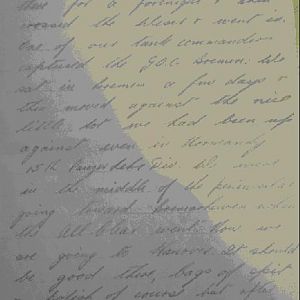 there for a fortnight & then
crossed the Weser & went in.
One of our tank commanders
captured the G.O.C. Bremen. We
sat in Bremen a few days &
then moved against the nice
little lot we had been up
against even in Normandy
15th Panzer Gren Div. We were
in the middle of the peninsula
going toward Bremerhaven when
the All-Clear went. Now we
are going to Hanover. It should
be good there, bags of spit
& polish of course but after